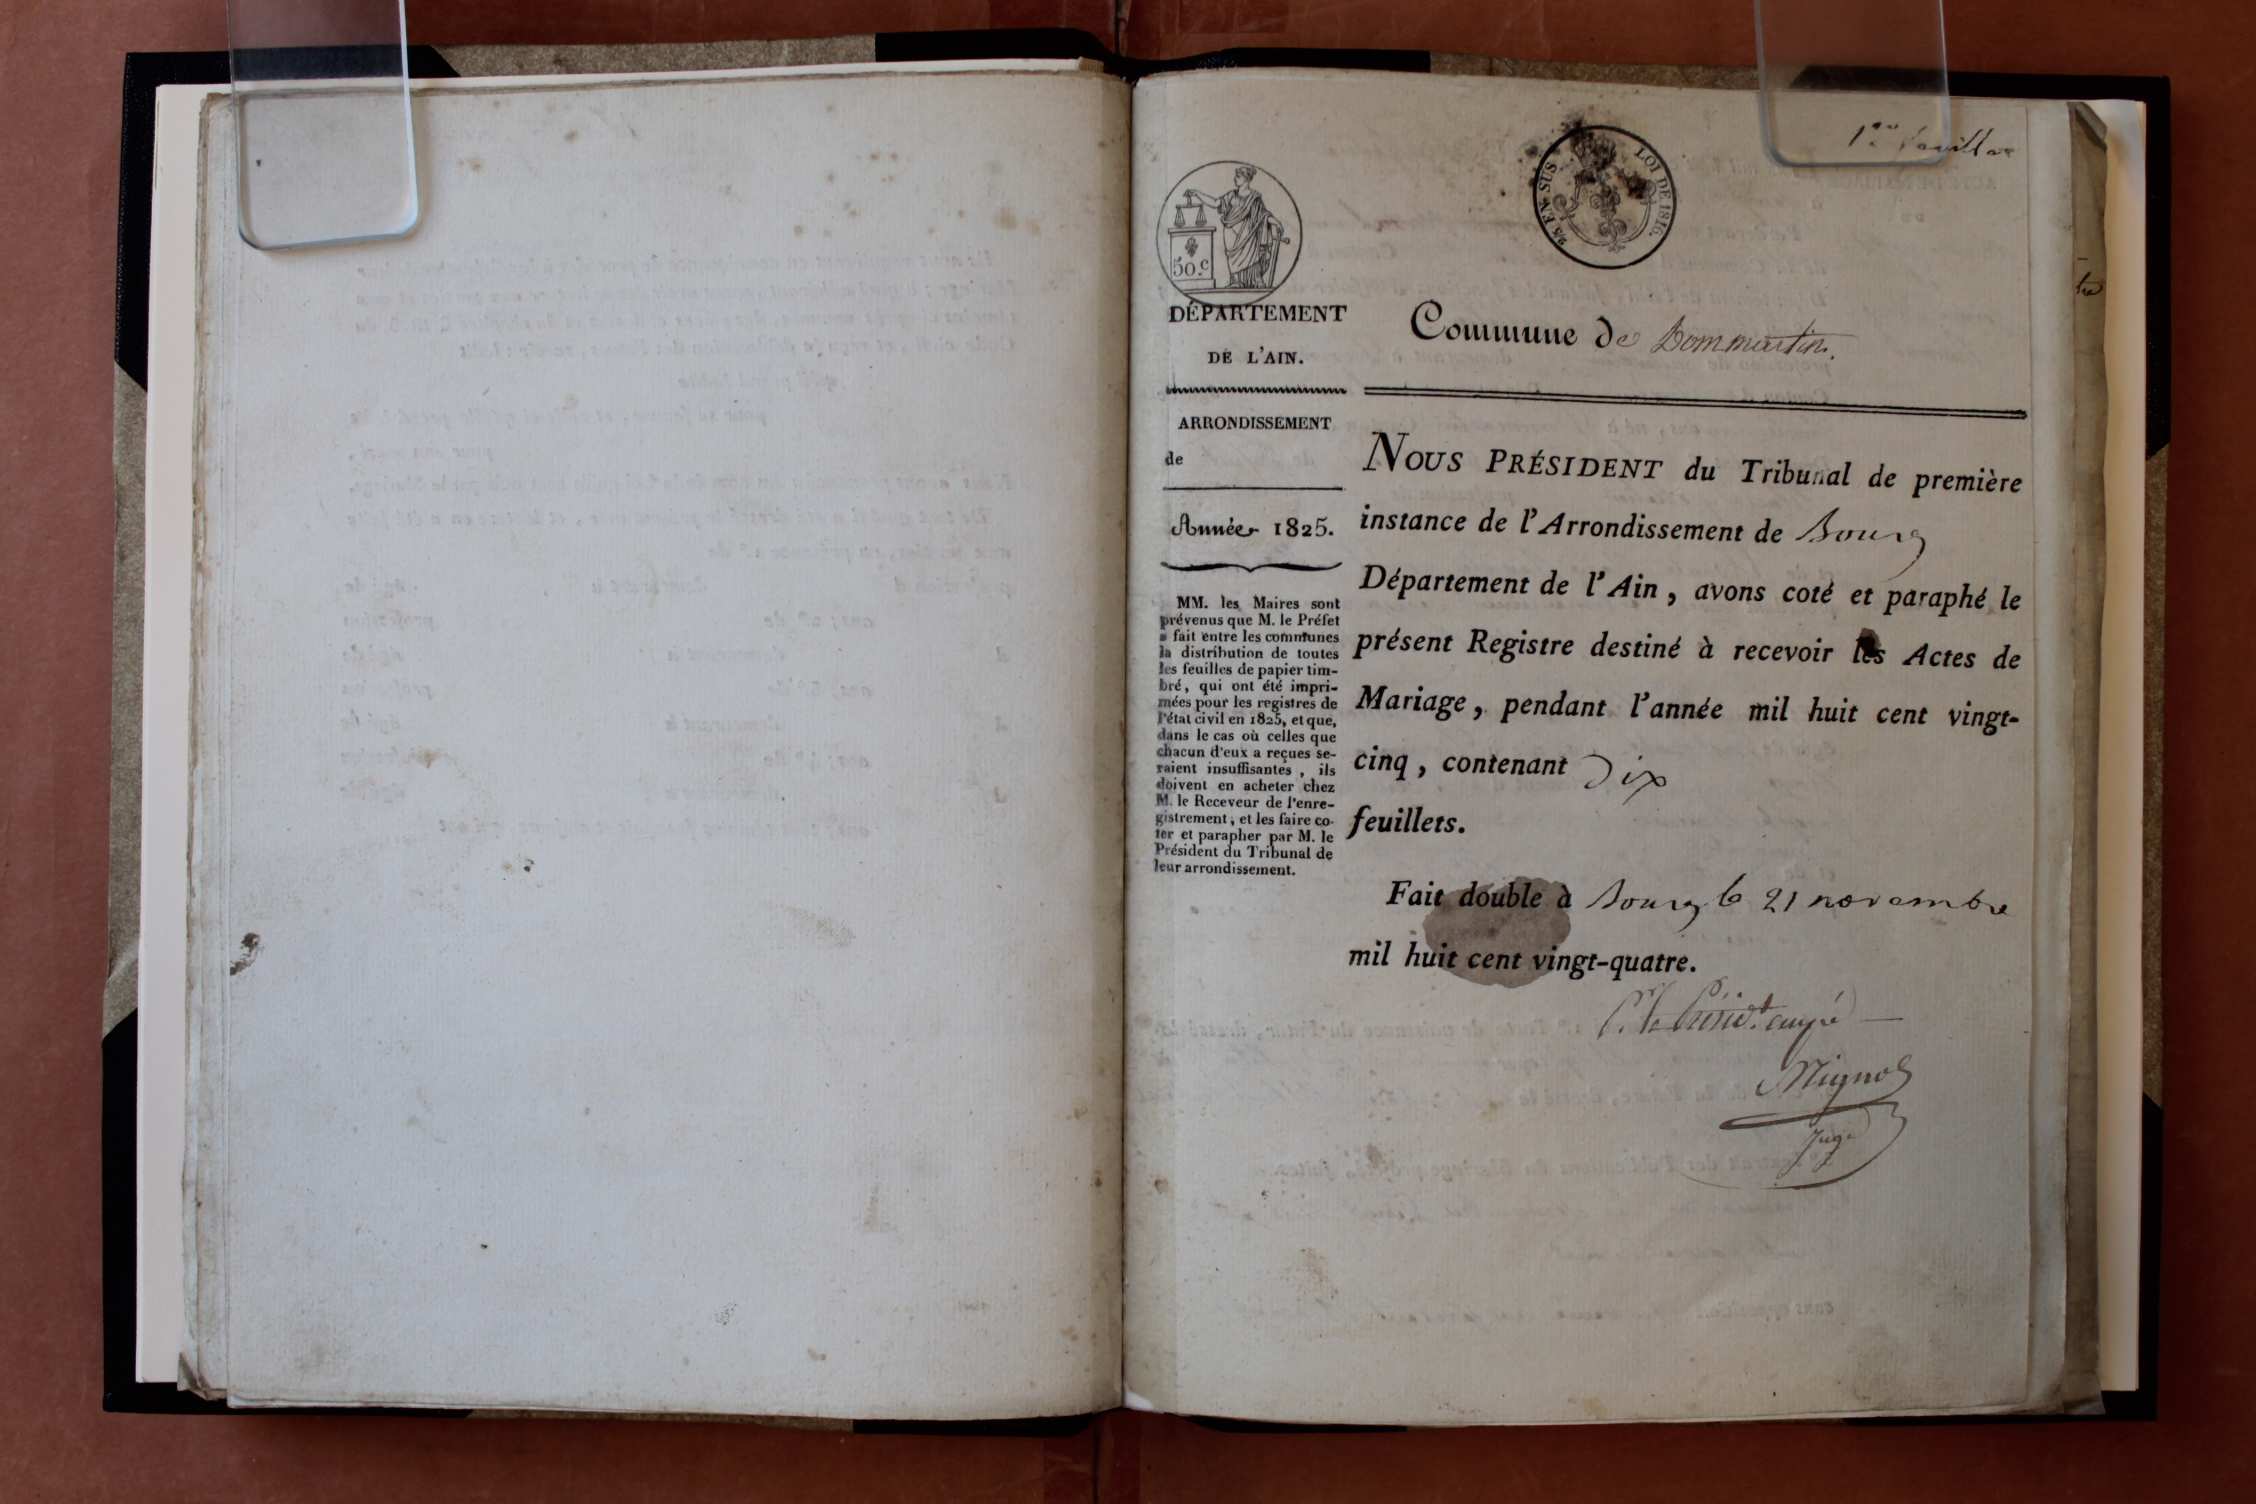 1er feuillet
50.c
25 EN SUS LOI DE 1816.
DÉPARTEMENT
DE L'AIN.
Commune de Dommartin.
ARRONDISSEMENT
de
Année 1825.
MM. les Maires sont
prévenus que M. le Préfet
a fait entre les communes
la distribution de toutes
les feuilles de papier tim-
bré, qui ont été impri-
mées pour les registres de
l'état civil en 1825, et que,
dans le cas où celles que
chacun d'eux a reçues se-
raient insuffisantes, ils
doivent en acheter chez
M. le Receveur de l'enre-
gistrement, et les faire co-
ter et parapher par M. le
Président du Tribunal de
leur arrondissement.
NOUS PRÉSIDENT du Tribunal de première
instance de l'Arrondissement de Bourg
Département de l'Ain, avons coté et paraphé le
présent Registre destiné à recevoir les Actes de
Mariage, pendant l'année mil huit cent vingt-
cinq, contenant Dix
feuillets.
Fait double à Bourg le 21 novembre
mil huit cent vingt-quatre.
P.r le Présid.t empé
Mignot
Juge